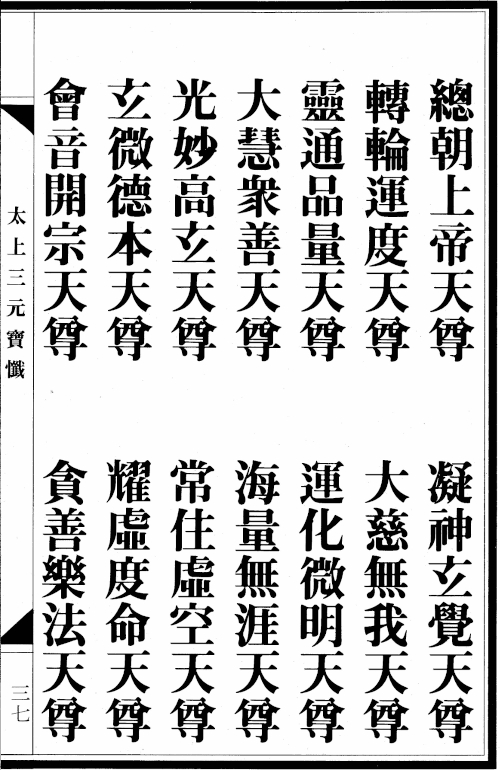 總朝上帝天尊　凝神玄覺天尊
轉輪運度天尊　大慈無我天尊
靈通品量天尊　運化微明天尊
大慧衆善天尊　海量無涯天尊
光妙高玄天尊　常住虛空天尊
玄微德本天尊　耀虛度命天尊
會音開宗天尊　貪善樂法天尊
太上三元寶懺
三七